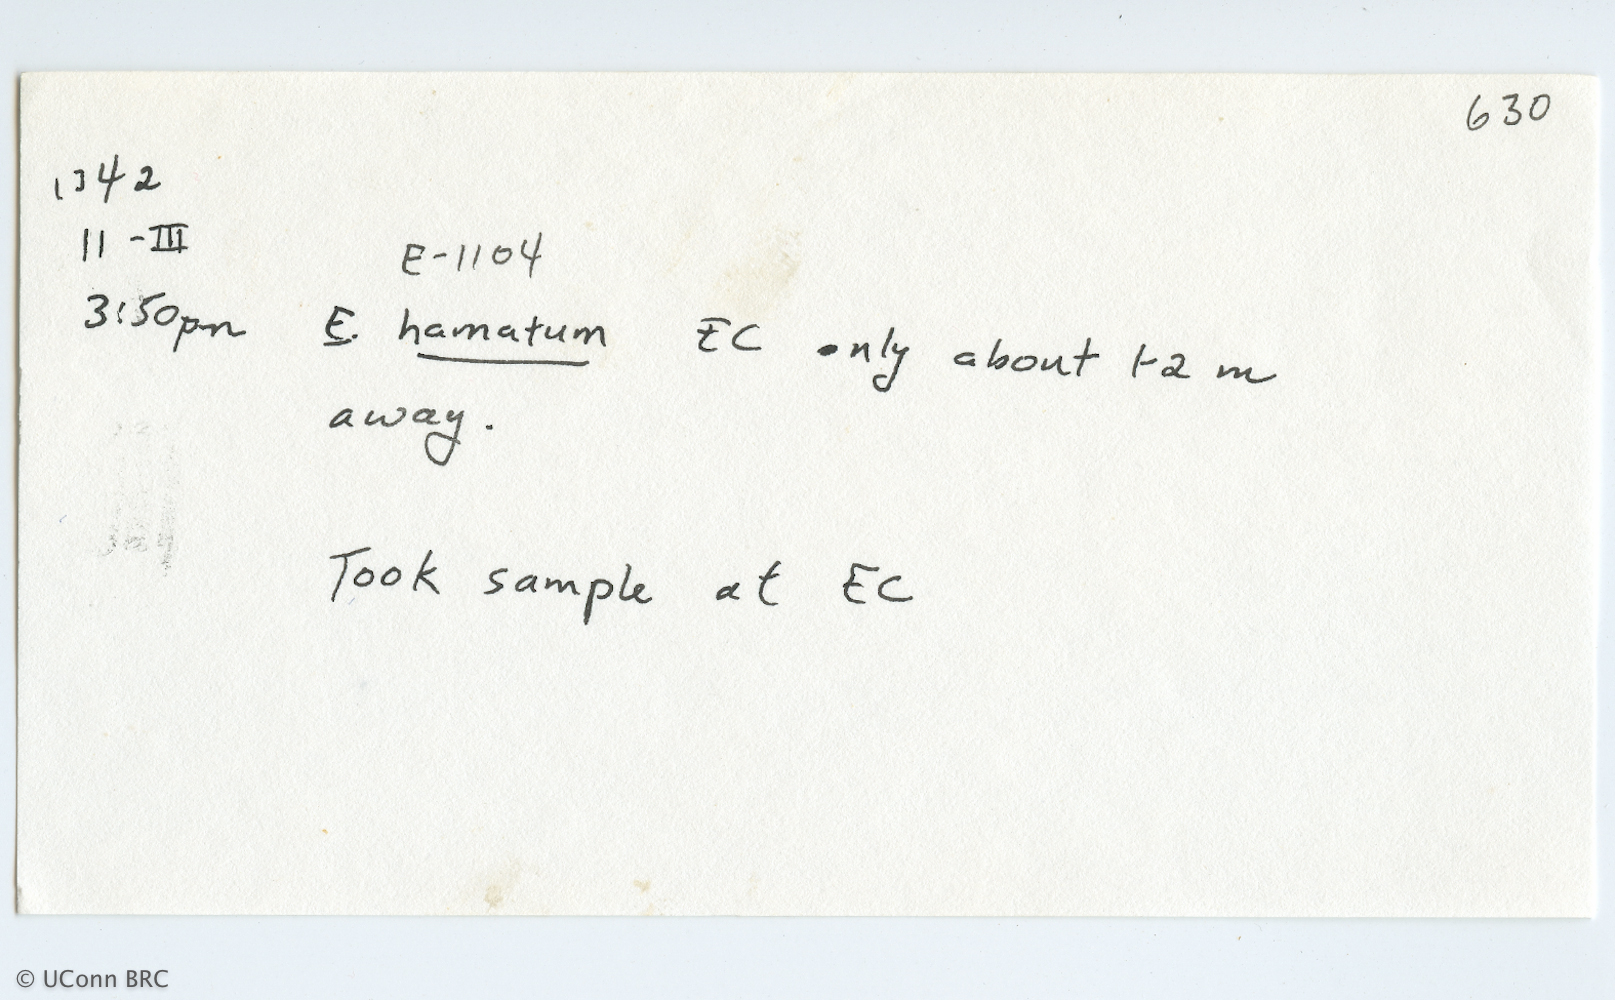 630
1342
11-III
E-1104
3:50pm E. hamatum EC only about 1-2 m
away.
Took sample at EC
© UConn BRC